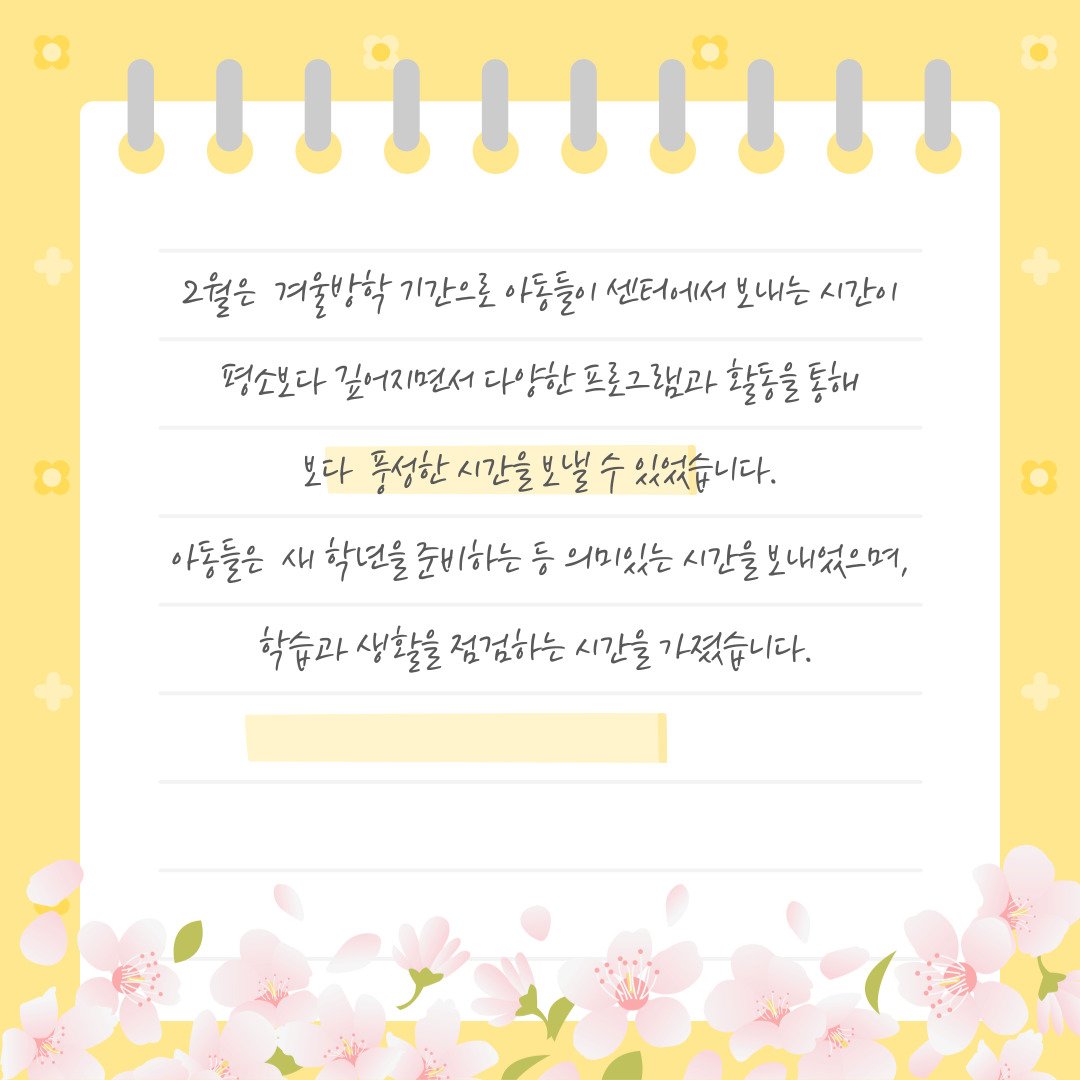 2월은 겨울방학 기간으로 아동들이 센터에서 보내는 시간이
평소보다 깊어지면서 다양한 프로그램과 활동을 통해
보다 풍성한 시간을 보낼 수 있었습니다.
아동들은 새 학년을 준비하는 등 의미있는 시간을 보내었으며,
학습과 생활을 점검하는 시간을 가졌습니다.